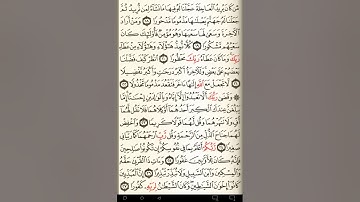 مَّن كَانَ يُرِيدُ ٱلْعَاجِلَةَ عَجَّلْنَا لَهُۥ فِيهَا مَا نَشَآءُ لِمَن نُّرِيدُ ثُمَّ
جَعَلْنَا لَهُۥ جَهَنَّمَ يَصْلَىٰهَا مَذْمُومًا مَّدْحُورًا ١٨ وَمَنْ أَرَادَ
ٱلْءَاخِرَةَ وَسَعَىٰ لَهَا سَعْيَهَا وَهُوَ مُؤْمِنٌ فَأُو۟لَٰٓئِكَ كَانَ
سَعْيُهُم مَّشْكُورًا ١٩ كُلًّا نُّمِدُّ هَٰٓؤُلَآءِ وَهَٰٓؤُلَآءِ مِنْ عَطَآءِ
رَبِّكَ وَمَا كَانَ عَطَآءُ رَبِّكَ مَحْظُورًا ٢٠ ٱنظُرْ كَيْفَ فَضَّلْنَا
بَعْضَهُمْ عَلَىٰ بَعْضٍ وَلَلْءَاخِرَةُ أَكْبَرُ دَرَجَٰتٍ وَأَكْبَرُ تَفْضِيلًا
٢١ لَّا تَجْعَلْ مَعَ ٱللَّهِ إِلَٰهًا ءَاخَرَ فَتَقْعُدَ مَذْمُومًا مَّخْذُولًا ٢٢
۞ وَقَضَىٰ رَبُّكَ أَلَّا تَعْبُدُوٓا۟ إِلَّآ إِيَّاهُ وَبِٱلْوَٰلِدَيْنِ إِحْسَٰنًا إِمَّا
يَبْلُغَنَّ عِندَكَ ٱلْكِبَرَ أَحَدُهُمَآ أَوْ كِلَاهُمَا فَلَا تَقُل لَّهُمَآ
أُفٍّ وَلَا تَنْهَرْهُمَا وَقُل لَّهُمَا قَوْلًا كَرِيمًا ٢٣ وَٱخْفِضْ
لَهُمَا جَنَاحَ ٱلذُّلِّ مِنَ ٱلرَّحْمَةِ وَقُل رَّبِّ ٱرْحَمْهُمَا كَمَا رَبَّيَانِى
صَغِيرًا ٢٤ رَّبُّكُمْ أَعْلَمُ بِمَا فِى نُفُوسِكُمْ إِن تَكُونُوا۟ صَٰلِحِينَ
فَإِنَّهُۥ كَانَ لِلْأَوَّٰبِينَ غَفُورًا ٢٥ وَءَاتِ ذَا ٱلْقُرْبَىٰ حَقَّهُۥ
وَٱلْمِسْكِينَ وَٱبْنَ ٱلسَّبِيلِ وَلَا تُبَذِّرْ تَبْذِيرًا ٢٦ إِنَّ ٱلْمُبَذِّرِينَ
كَانُوٓا۟ إِخْوَٰنَ ٱلشَّيَٰطِينِ وَكَانَ ٱلشَّيْطَٰنُ لِرَبِّهِۦ كَفُورًا ٢٧